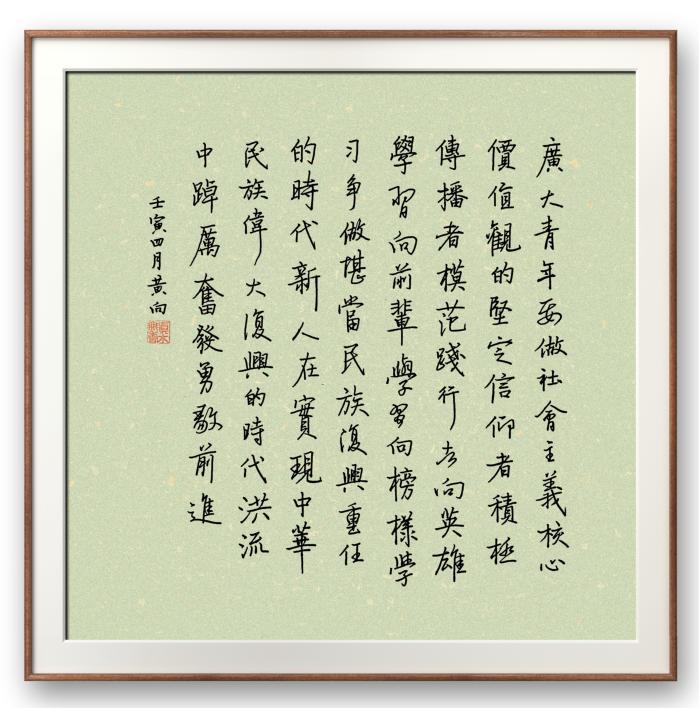 廣大青年要做社會主義核心
價值觀的堅定信仰者積極
傳播者模范踐行者向英雄
學習向前輩學習向榜樣學
习争做堪當民族復興重任
的時代新人在實現中華
民族偉大復興的時代洪流
中踔厲奮發勇毅前進
壬寅四月黃向